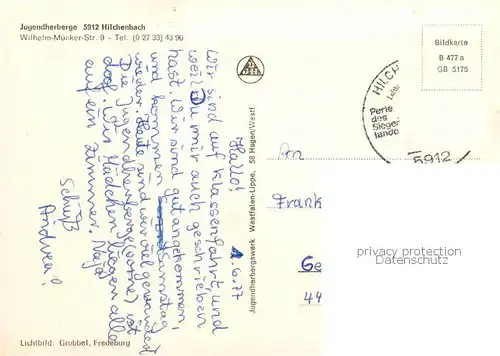 Jugendherberge 5912 Hilchenbach
Wilhelm-Münker-Str. 9 - Tel. (0 27 33) 43 96
Bildkarte
B 477 a
GB 5175
HILCH
Perle
des
Sieger
lande
5912
1.6.77
Hallo!
Wir sind auf Klassenfahrt, und
weil Du mir auch geschrieben
hast. Wir sind gut angekommen,
und kommen Samstag
wieder. Heute sind wir viel gewandert
Die Jugendherberge ist
doof. Wir Mädchen liegen alle
auf ein Zimmer. Naja
Schüß
Andrea!
Jugendherbergswerk Westfalen-Lippe, 58 Hagen/Westf.
An
Frank
Ge
44
privacy protection
VERPI
Lichtbild: Grobbel, Fredeburg